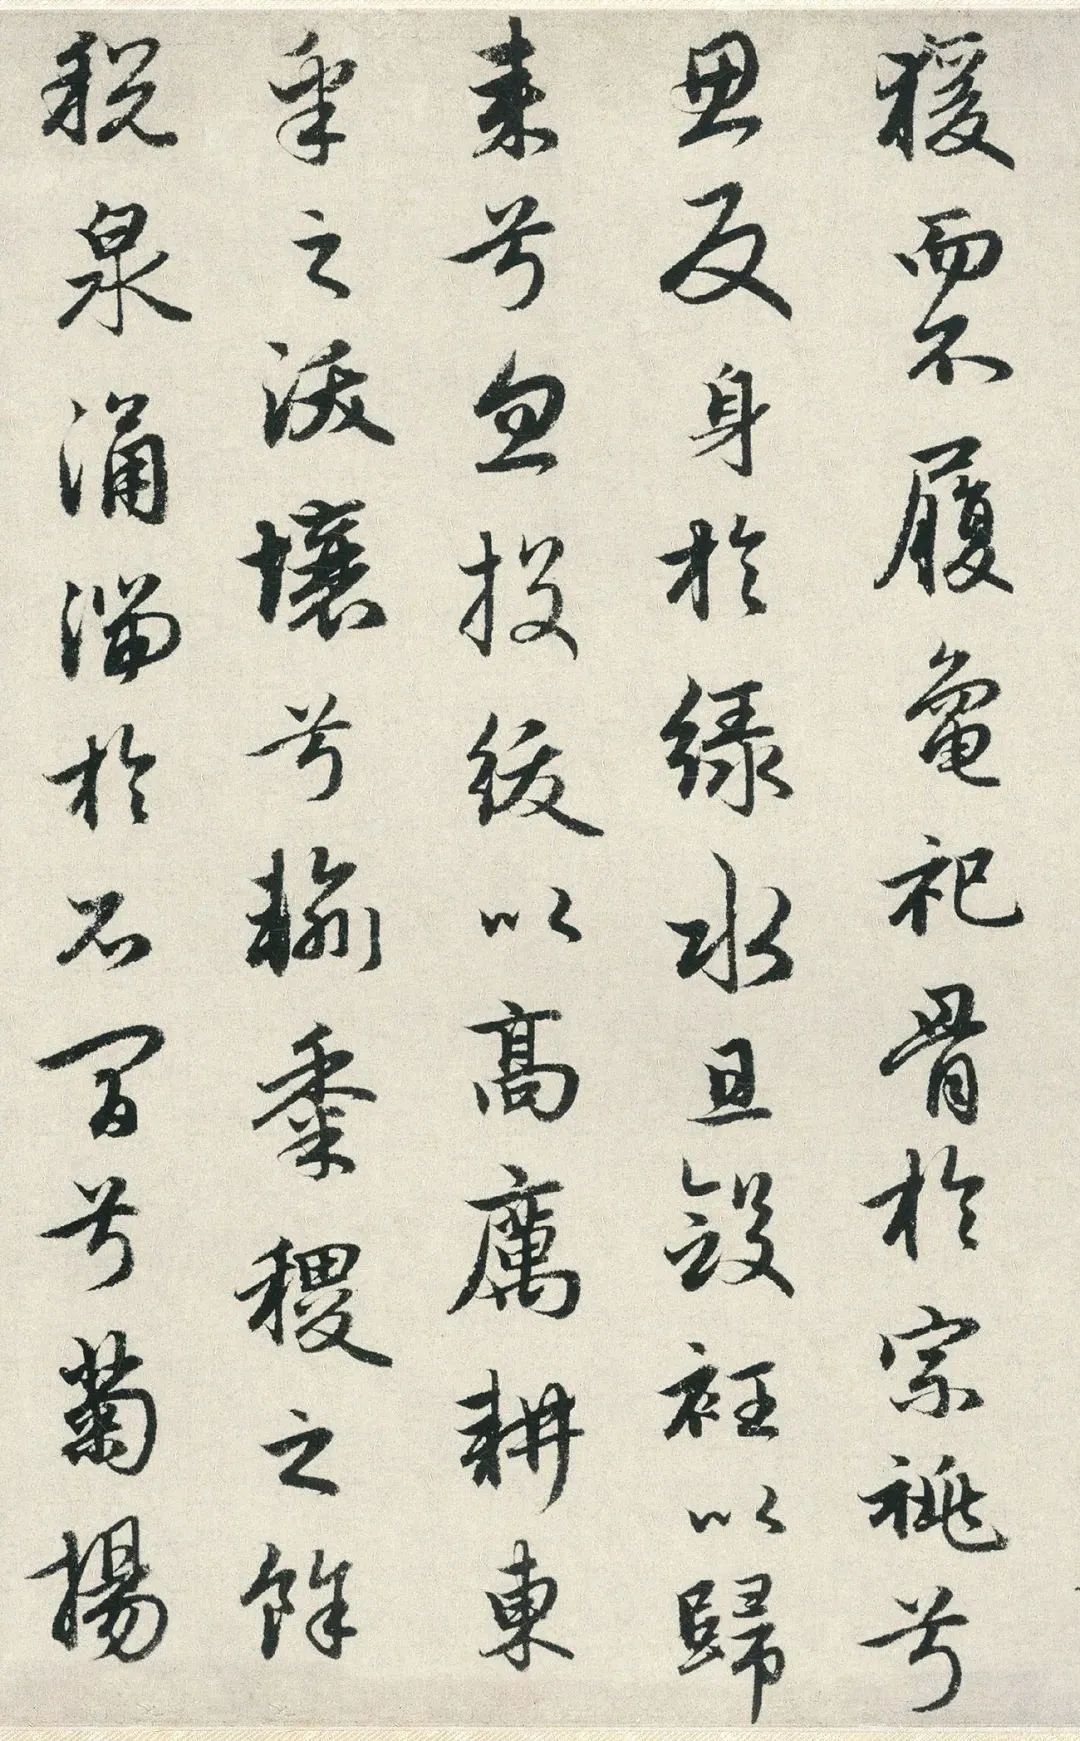 猨而不履龜祀骨於宗祧兮
思反身於緑水且斂衽以歸
来兮忽投紱以高厲耕東
皋之沃壤兮輸黍稷之餘
税泉涌湍於石間兮菊揚